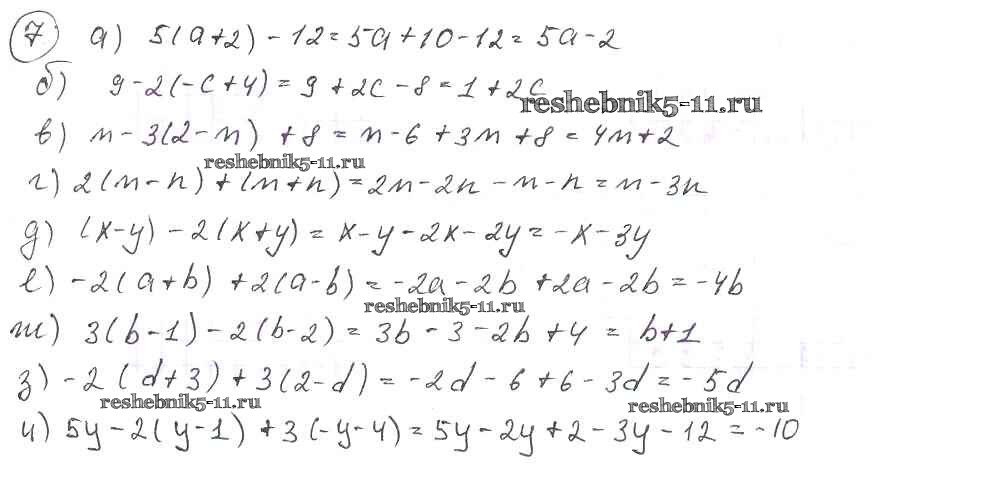 7 а) 5(a+2) - 12 = 5a + 10 - 12 = 5a - 2
б) 9 - 2(-c + 4) = 9 + 2c - 8 = 1 + 2c
reshebnik5-11.ru
в) n - 3(2 - n) + 8 = n - 6 + 3n + 8 = 4n + 2
reshebnik5-11.ru
г) 2(m - n) + (m + n) = 2m - 2n - m - n = m - 3n
д) (x - y) - 2(x + y) = x - y - 2x - 2y = -x - 3y
е) -2(a + b) + 2(a - b) = -2a - 2b + 2a - 2b = -4b
reshebnik5-11.ru
ж) 3(b - 1) - 2(b - 2) = 3b - 3 - 2b + 4 = b + 1
з) -2(d + 3) + 3(2 - d) = -2d - 6 + 6 - 3d = -5d
reshebnik5-11.ru reshebnik5-11.ru
и) 5y - 2(y - 1) + 3(-y - 4) = 5y - 2y + 2 - 3y - 12 = -10